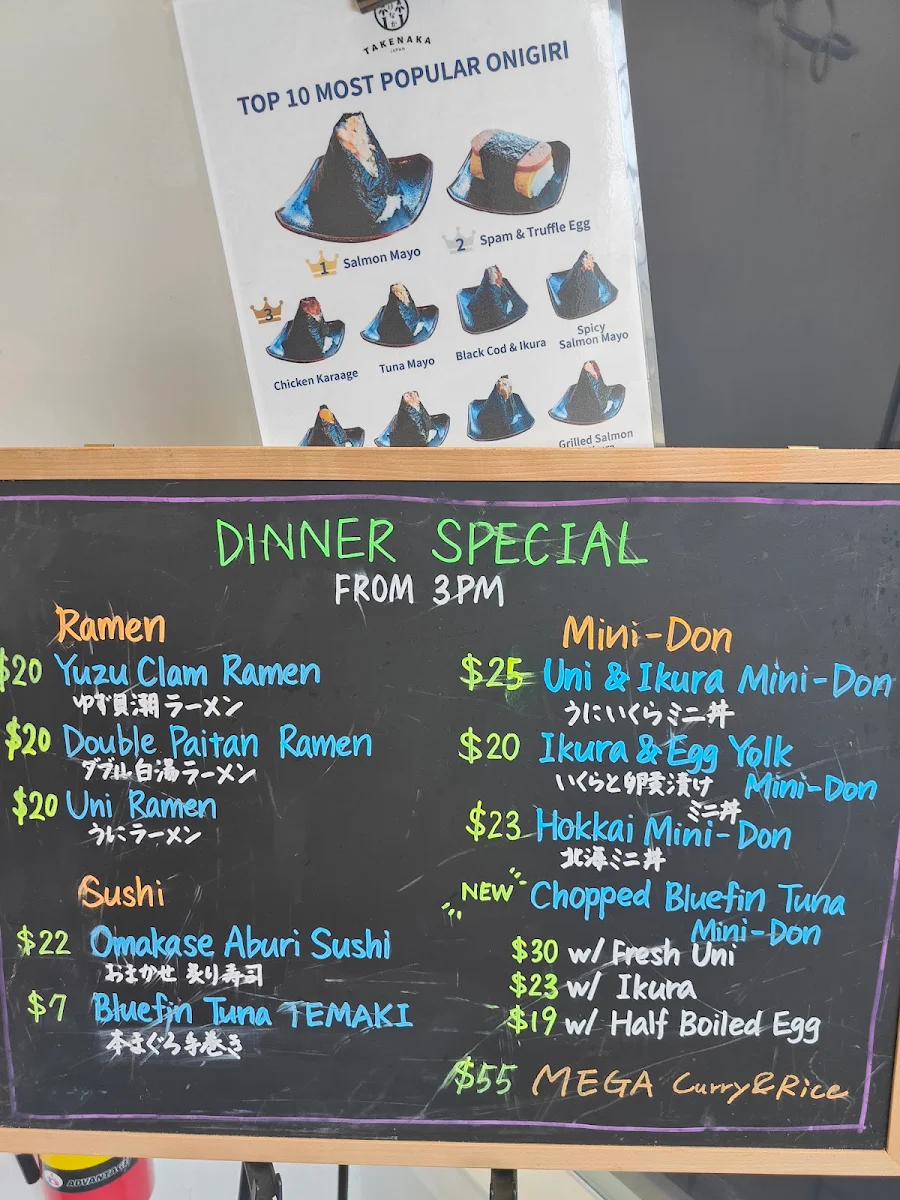 TAKENAKA
JAPAN
TOP 10 MOST POPULAR ONIGIRI
1 Salmon Mayo
2 Spam & Truffle Egg
3
Chicken Karaage
Tuna Mayo
Black Cod & Ikura
Spicy
Salmon Mayo
Grilled Salmon
DINNER SPECIAL
FROM 3PM
Ramen
$20 Yuzu Clam Ramen
ゆず貝潮ラーメン
$20 Double Paitan Ramen
ダブル白湯ラーメン
$20 Uni Ramen
うにラーメン
Sushi
$22 Omakase Aburi Sushi
おまかせ 炙り寿司
$7 Bluefin Tuna TEMAKI
本まぐろ手巻き
Mini-Don
$25 Uni & Ikura Mini-Don
うにいくらミニ丼
$20 Ikura & Egg Yolk
Mini-Don
いくらと卵黄漬け
ミニ丼
$23 Hokkai Mini-Don
北海ミニ丼
NEW Chopped Bluefin Tuna
Mini-Don
$30 w/ Fresh Uni
$23 w/ Ikura
$19 w/ Half Boiled Egg
$55 MEGA Curry&Rice
ADVANTAGE